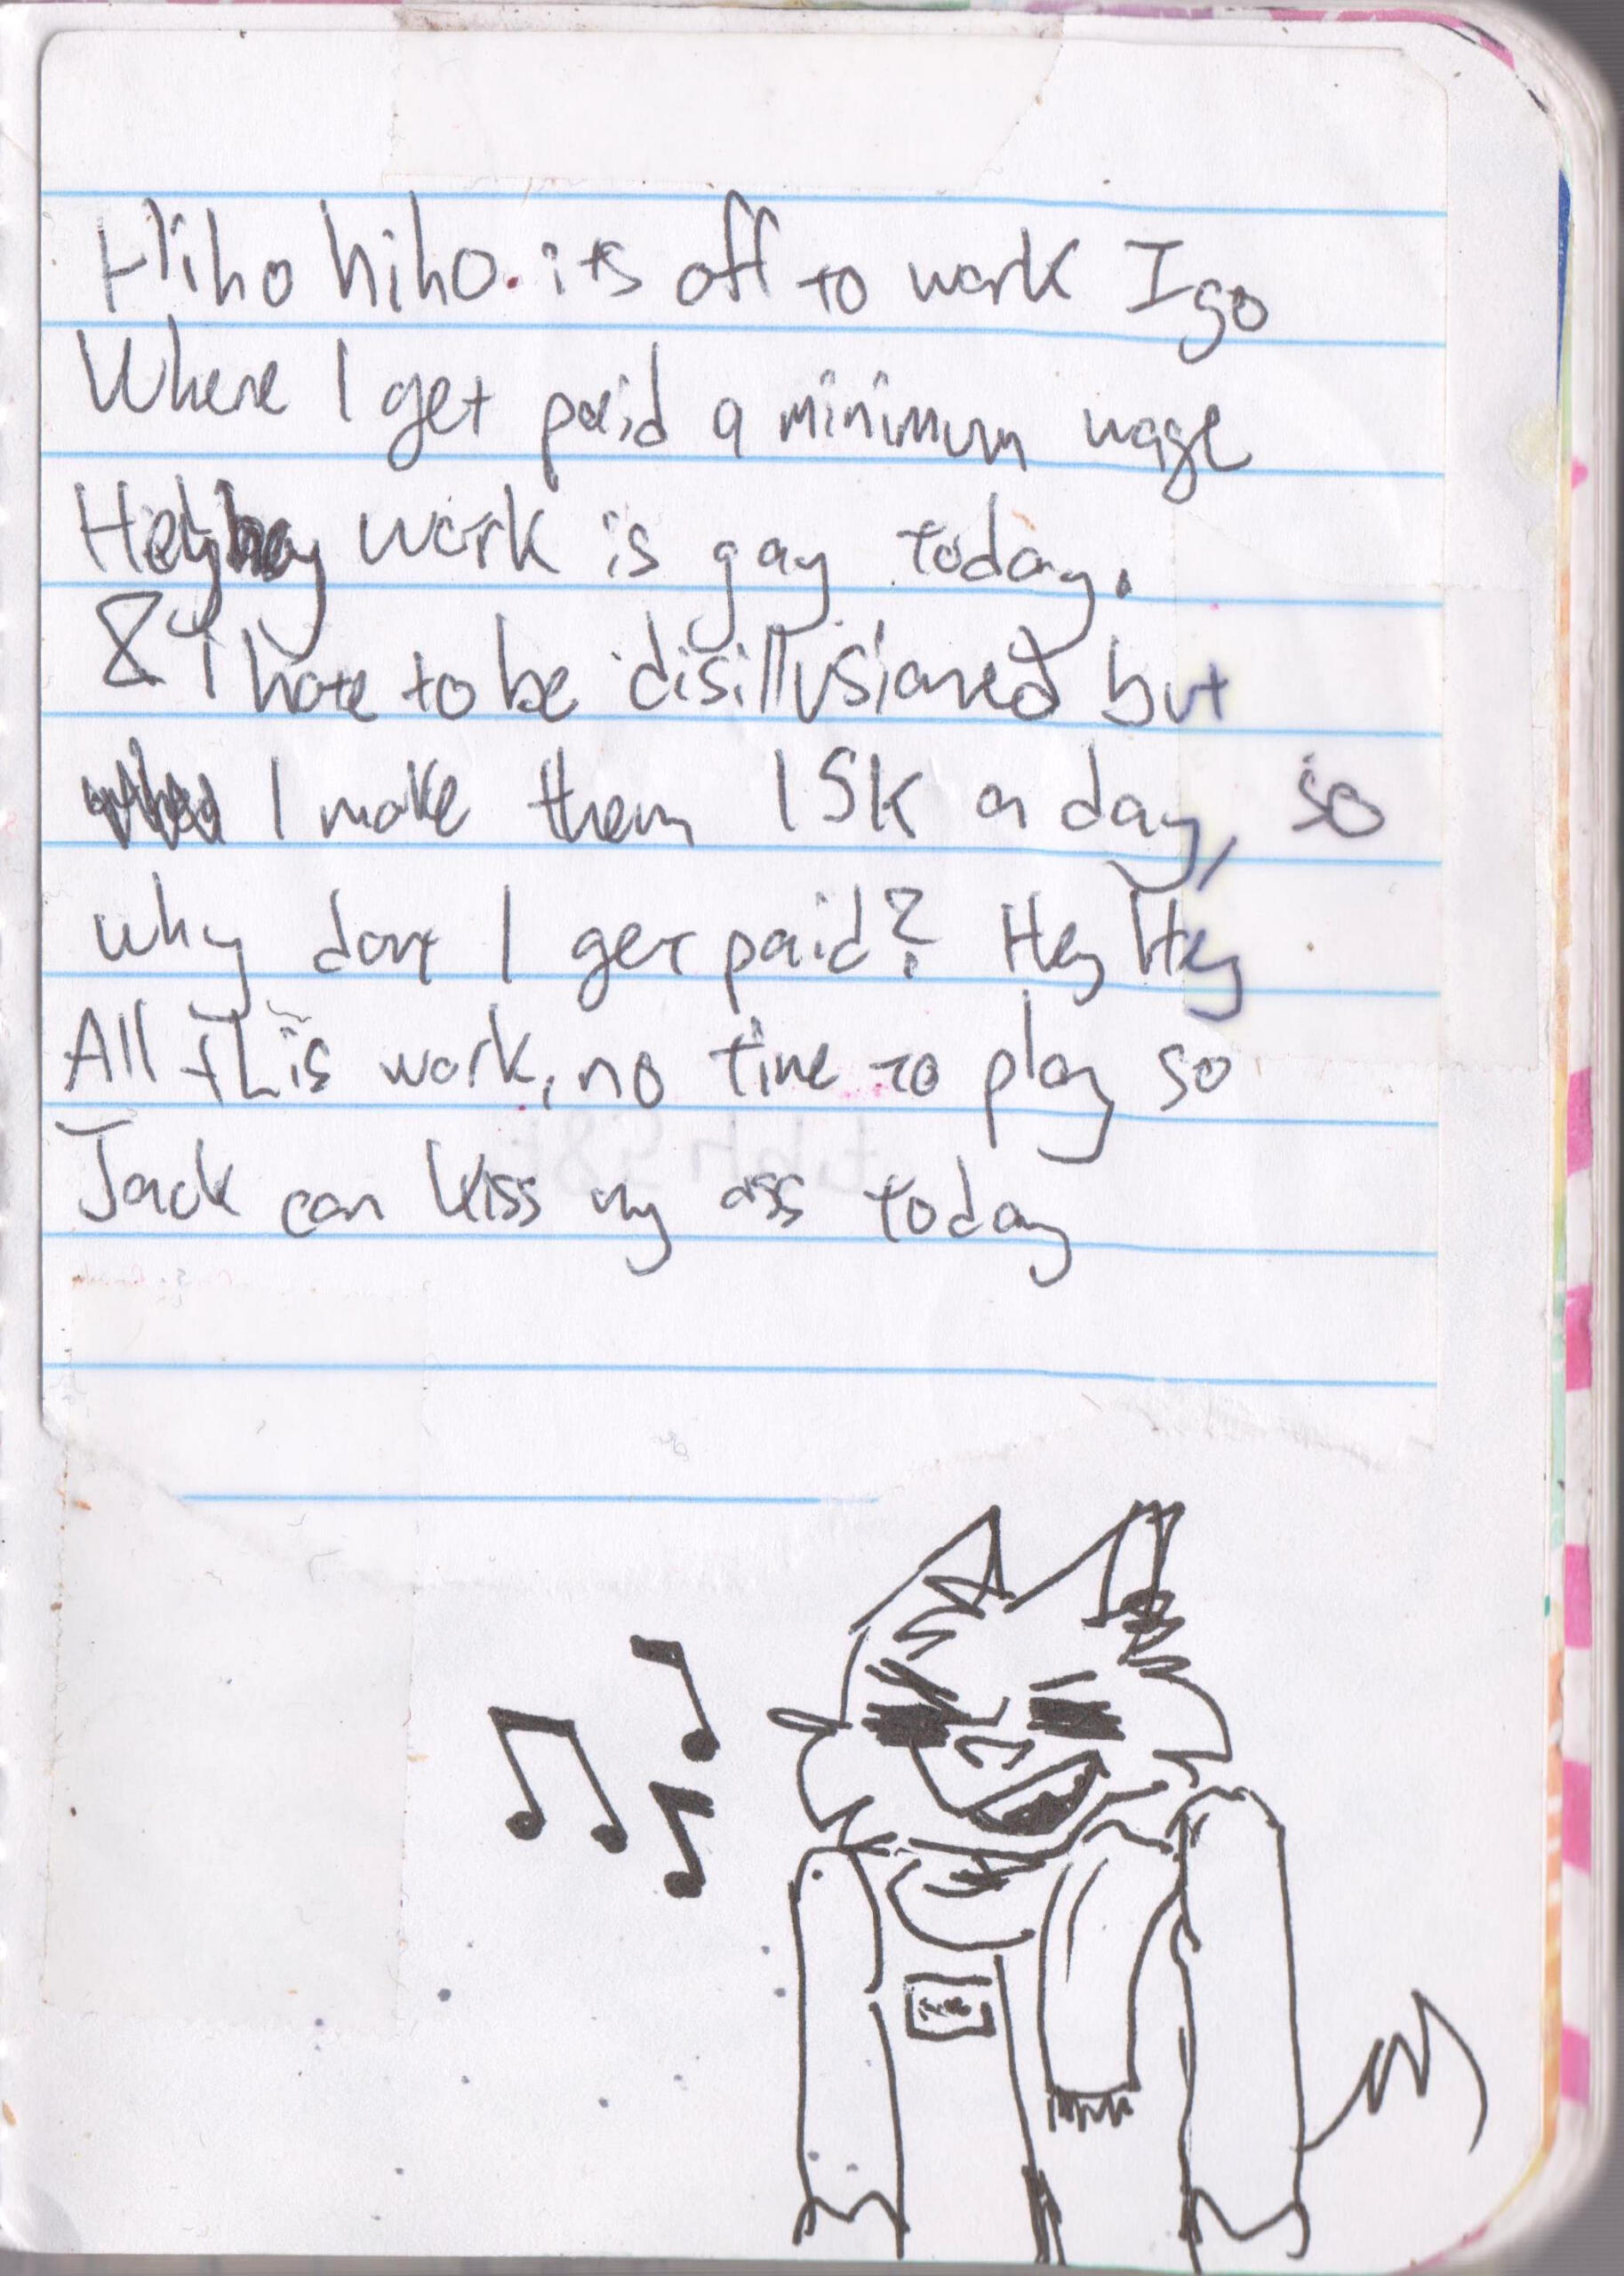 Hiho hiho. its off to work I go
Where I get paid a minimum wage
Hey hey work is gay today.
& I hate to be disillusioned but
I make them 15K a day, so
why dont I get paid? Hey Hey
All this work, no time to play so
Jack can kiss my ass today